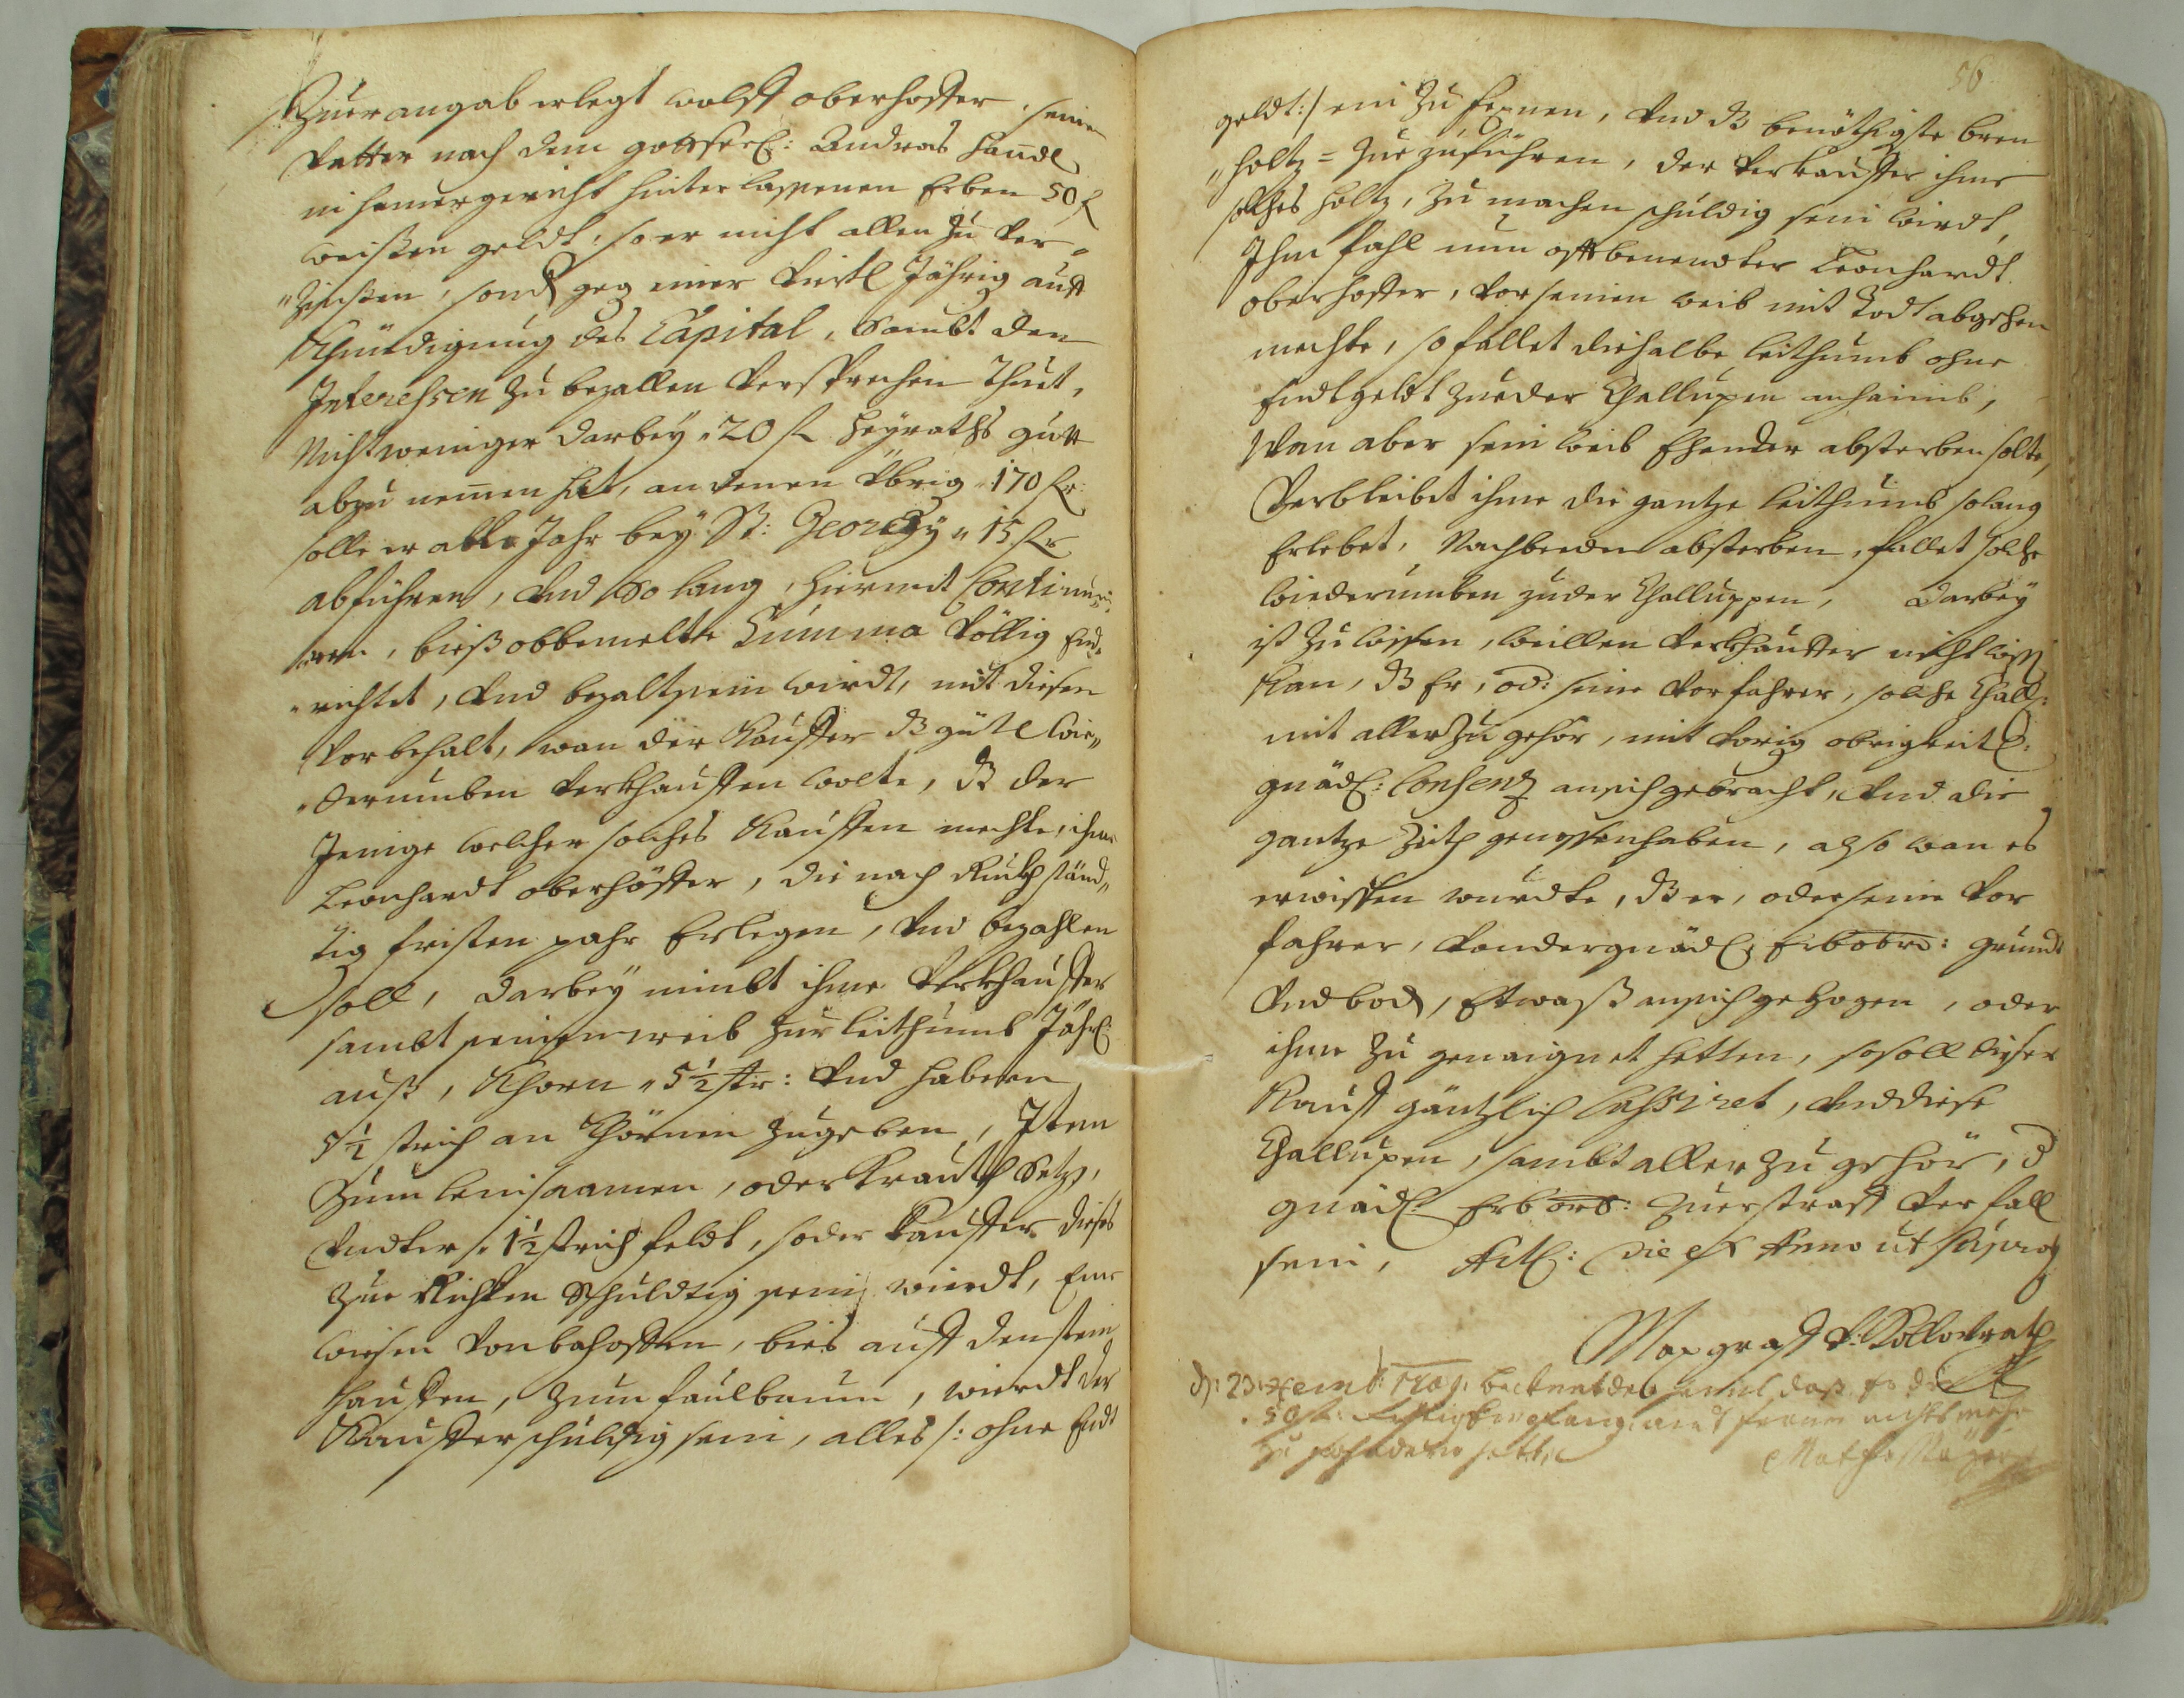 Zuer angab erlegt wolff oberhoffer, seine
Vatter nach dem gottseel: Andreas Handl
in hamergericht hinterlassenen Erben 50 f
weissen geldt, so er nicht allen zu ver„
„zinssen, sond geg einer Viertl Jährig auff
Khündigung des Capital, sambt den
Interehsen zu bezallen Versprechen Thuet,
Nicht weniger darbey „20 f Heyraths gutt
abzu nemen hat, an denen Übrig „170 fr:
solle er alle Jahr bey St: Georgy „15 fr
abführen, Vnd so lang, hiermit Continui„
ren, bieß obbemelte Summa Völlig Endt„
„richtet, Vnd bezalt sein wirdt, mit diesen
Vorbehalt, wan der Kauffer dz güetl wie„
„derumben Verkhauffen wolte, dz der
Jenige welcher solches Kauffen mechte, ihme
Leonhardt oberhöffer, die nach Ruckhständ„
tig fristen pahr Erlegen, Vnd bezahlen
soll, darbey nimbt ihme Verkhauffer
sambt seinen weib zur leithumb Jährl:
auß, Khorn „5½ str: Vnd habern
5½ strich an Khörnen zugeben, Item
Zum leinsaamen, oder Krauth Setz,
Vndter „1½ strich feldt, so der Kauffer dieses
zue Richten Schuldtig sein wierdt, Eine
wiesen Von bahoffen, bies auff den stein
hauffen, zum faulbaum, wierdt der
Kauffer schuldig sein, alles /: ohne Endt
56
geldt:/ ein zu fexnen, Vnd dz benöthigste bren
„holtz = zue zuführen, der Verkauffer ihme
solches holtz, zu machen schuldig sein wirdt,
Ihm fahl nun offtbenendter Leonhardt
oberhoffer, Vor seinen weib mit Todt abgehen
mechte, so fallet die halbe leithumb ohne
Endtgeldt zu der Challupen anhaimb,
Wan aber sein weib Ehender absterben solte,
Verbleibet ihme die gantze leithumb solang
Erlebet, Nach beeden absterben, fallet solche
wiederumben zu der Challuppen, darbey
ist zu wissen, weillen Verkhauffer nicht wiss
kan, dz Er, od: seine Vorfahrer, solche Chall:
mit aller Zugehör, mit Vorig obrigkeitl:
gnädl: Consenz an sich gebracht, Vnd die
gantze Zeith genossen haben, also wan es
erwissen wurdte, dz er, oder seine Vor
fahrer, Von der gnädl: Erbobrd: grundt
Vnd bod, Etwaß an sich gezogen, oder
ihme zu genaignet hetten, so soll dieser
Kauff gäntzlich Cassiret, Vnd diese
Challupen, sambt aller zu gehör, d
gnädl: Erbobr: zuer straff Verfall
sein, Act: die et Anno ut supra
Max graff V: Kollowrath
50 f:
zu